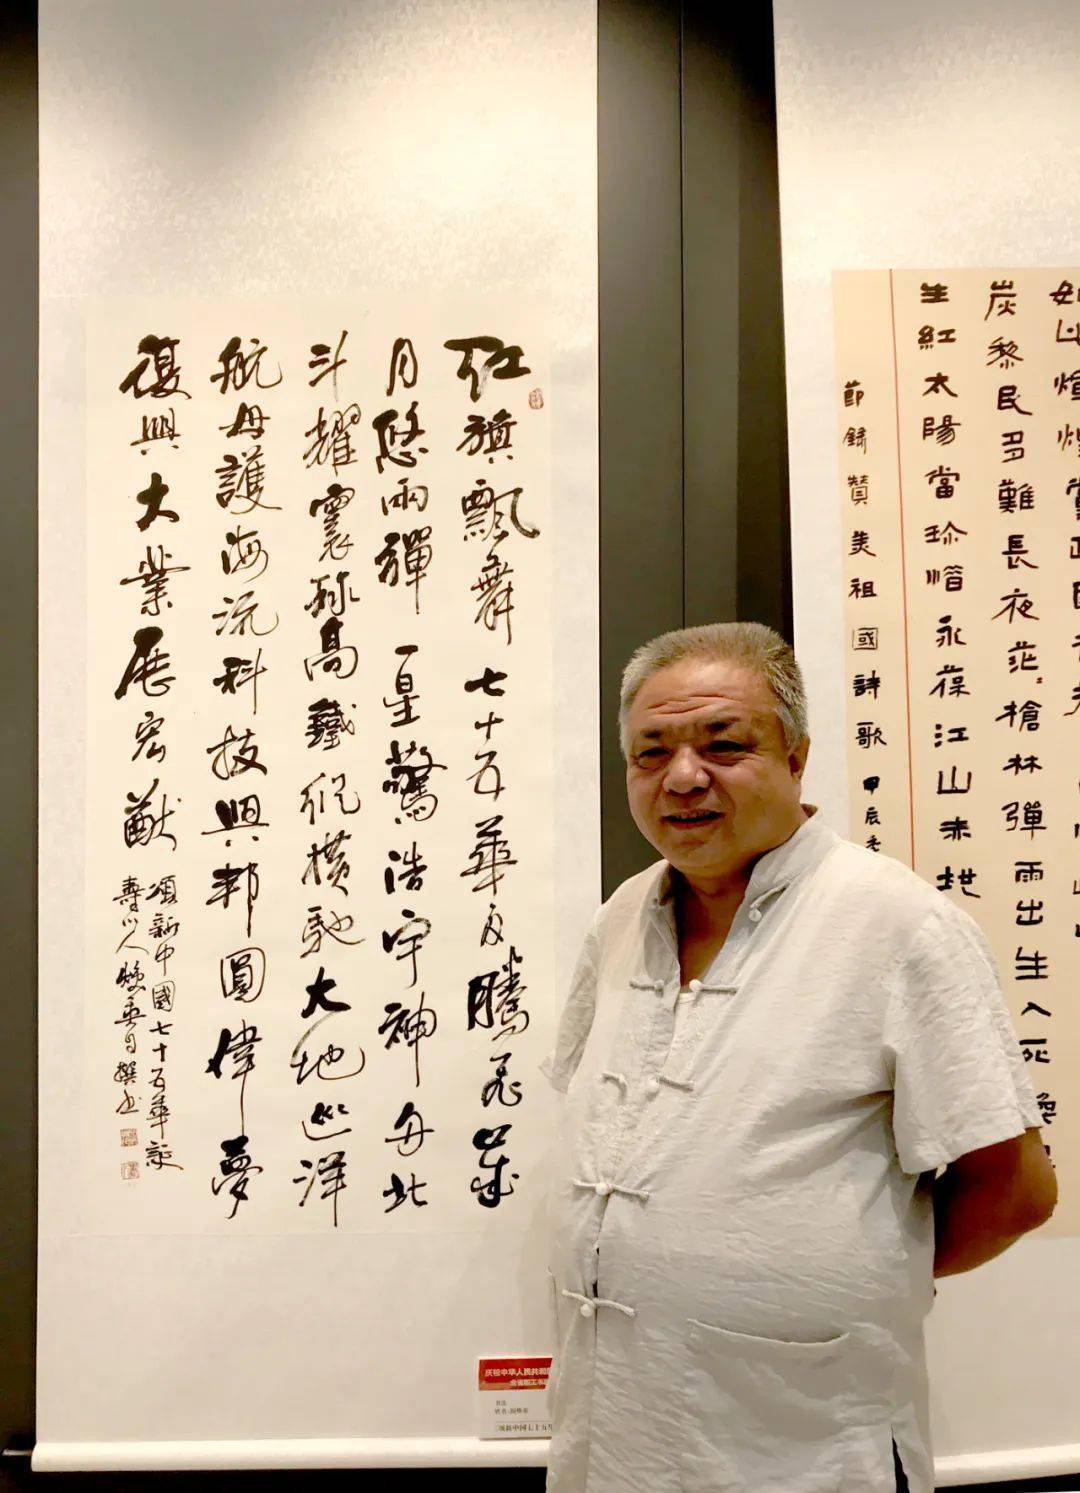 红旗飄舞七十五華夏騰飛歲
月悠兩彈一星驚浩宇神舟北
斗耀寰球高鐵縱橫馳大地巡洋
航母護海流科技興邦圓偉夢
復興大業展宏猷
頌新中國七十五華誕
壽山人
自撰书
炭黎民多難長夜茫〻槍林彈雨出生入死
生紅太陽當珍惜永葆江山赤地
節錄贊美祖國詩歌 甲辰
庆祝中华人民共和
全省职工书
书法
姓名:
颂新中国七十五